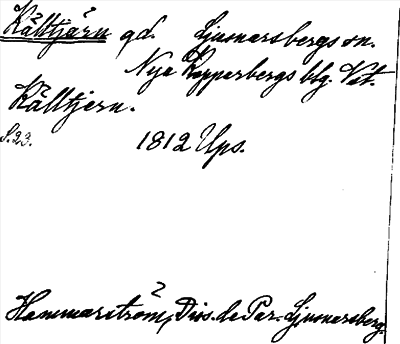 Källtjärn gd. Ljusnarsbergs sn.
Nya Kopparbergs blg. Vst.
Källtjern.
S. 23. 1812 Ups.
Hammarström, Diss. de Par. Ljusnarsberg.